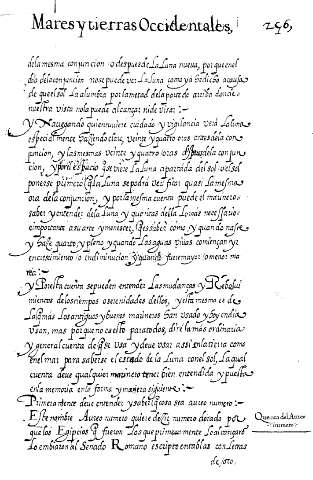 Mares y tierras Occidentales, 296,
dela misma conjuncion o despues de la Luna nueva, porque en el
dia de la conjuncion no se puede ver la Luna como ya he dicho a causa
de que el sol la alumbra por la mitad de la parte de arriba donde
nuestra vista no la puede alcançar ni devisar:
y Nauegando quien tuuiere cuidado y vigilancia vera la luna
especialmente haziendo claro, veinte y quatro oras antes de la con
juncion, y las mesmas veinte y quatro oras despues de la conjun
cion, y por el espacio que se viere la Luna apartada del sol
ponerse primero que la Luna se podra ver quasi la mesma
ora de la conjuncion, y por la mesma cuenta puede el marinero
saber y entender de la Luna
importante a su arte y menester, que es saber como y quando nasce
y haze quarto y pleno y quando las aguas viuas comiençan
crescimiento o diminucion y quando fuere mayor o menor ma
rea:
y Por esta cuenta se pueden entender las mudanças y Rebolui
mientos de los tiempos o serenidades dellos, y esta mesma es de
la que mas los antiguos y buenos marineros han vsado y oy en dia
vsan, mas porque no es esto para todos, dire la mas ordinaria
y general cuenta de que se vsa y deue vsar assi en la tierra como
en el mar para saber se el estado de la Luna con el sol, la qual
cuenta deue qualquier marinero tener bien entendida y puesta
en la memoria en la forma y manera siguiente:
Primeramente deue entender y saber que cosa sea aureo numero:
Este nombre Aureo numero quiere dezir numero dorado por
que los Egipcios que fueron los que primeramente lo alcançaron
lo embiaron al Senado Romano escripto en tablas con letras
de oro.
Que cosa es el Aureo
numero